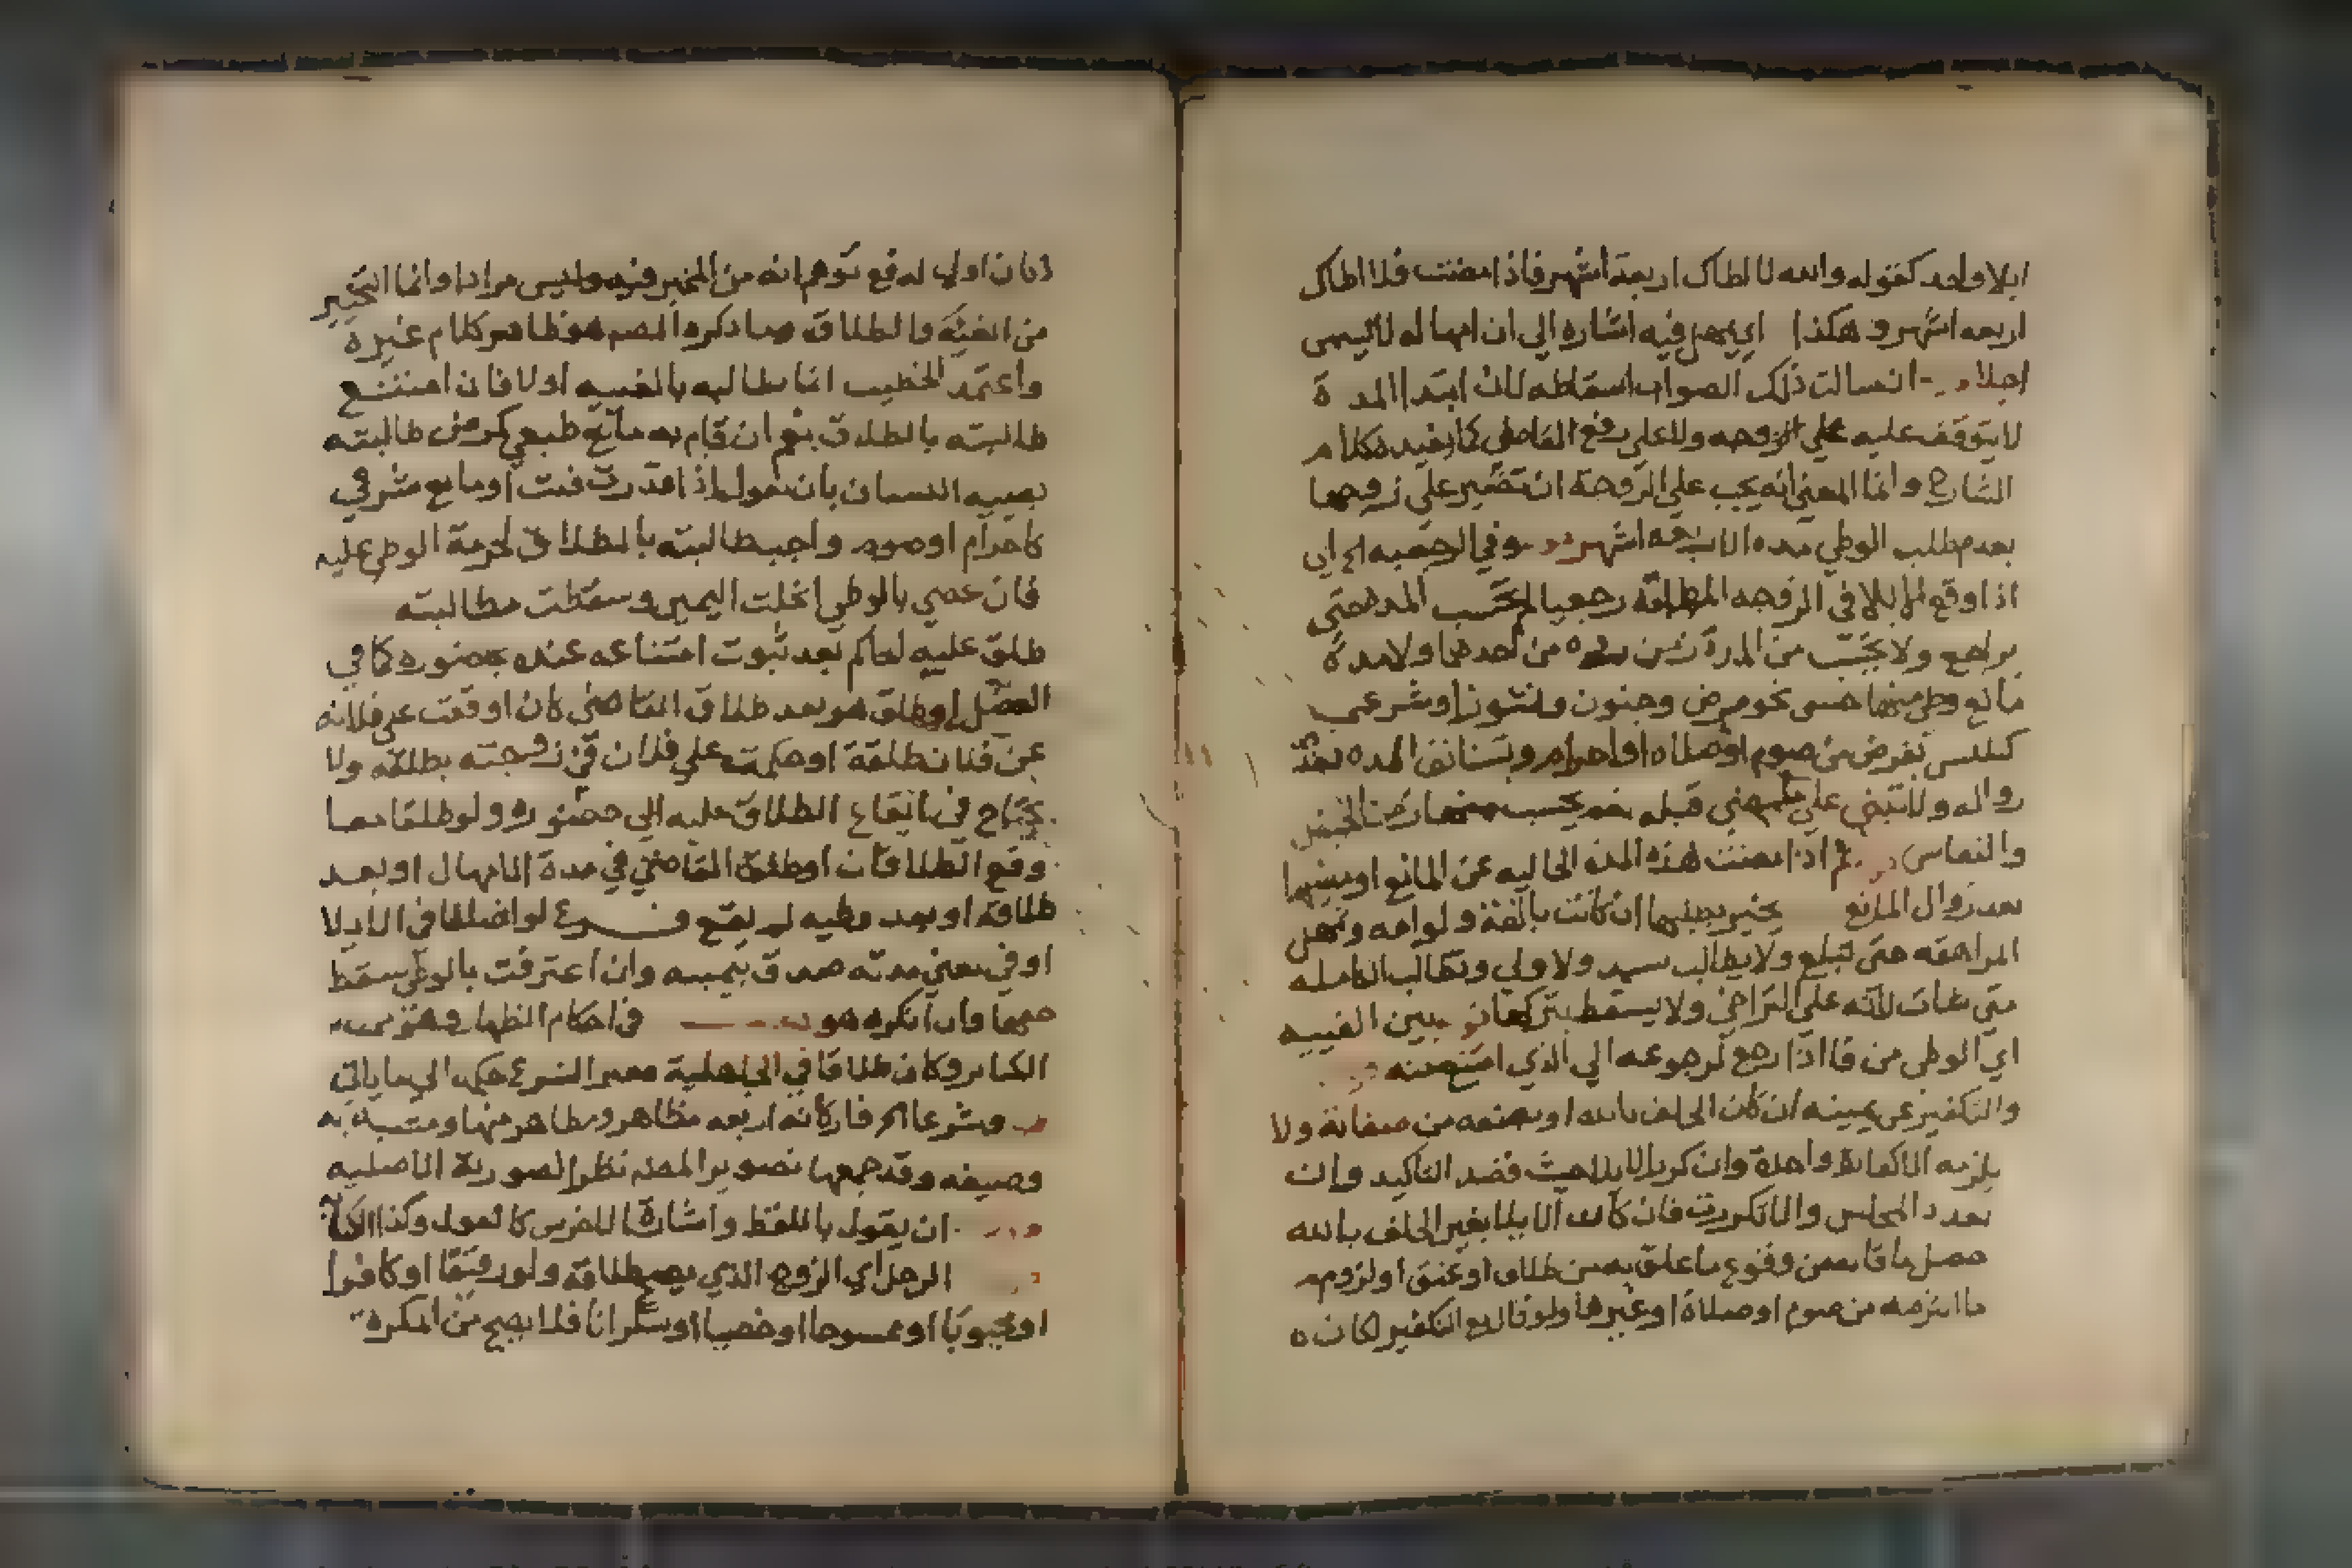 ايلا واحد كقوله والله لا اطاك اربعة اشهر فاذا مضت فلا اطاك
اربعه اشهر وهكذا اي يمهل فيه اشاره الي ان امهاله لا يسمى
اجلا ان سالت ذلك الصواب اسقاطه لان ابتدا المدة
لا يتوقف عليه علي الزوجه ولا علي رفع القاضي كما يفيده كلام
الشارح وانما المعني انه يجب علي الزوجة ان تصبر علي زوجها
بعدم طلب الوطي مده الاربعه اشهر وفي الرجعيه الخ اي
اذا وقع الايلا في الزوجه المطلقة رجعيا لم تحتسب المده حتى
يراجع ولا تحتسب من المدة زمن رده من احدهما ولا مدة
مانع وطي منها حسى نحو مرض وجنون ونشوز او شرعي
كتلبس بفرض من صوم او صلاه او احرام وتستانف المده بعد
زواله ولا تبني علي ما مضي قبله نعم يحسب منها زمن الحيض
والنفاس ثم اذا مضت هذه المدة الخاليه عن المانع او بينها
بعد زوال المانع يخير بينهما ان كانت بالغة ولو امه وتمهل
المراهقه حتى تبلغ ولا يطالب سيد ولا ولي وتطالب الكامله
متى شات لانه علي التراخي ولا يسقط بتركها بين الفييه
اي الوطي من فاء اذا رجع لرجوعه الي الذي امتنع منه
والتكفير عن يمينه ان كان الحلف بالله او بصفه من صفاته ولا
يلزمه الا كفارة واحدة وان كرر الايلا حيث قصد التاكيد وان
تعدد المجلس والا تكررت فان كان الايلا بغير الحلف بالله
حصل ما قاله من وقوع ما علق به من طلاق او عتق او لزوم
ما التزمه من صوم او صلاة او غيرها ولو قال مع التكفير لكان
اولي لدفع توهم انه من المخير فيه وليس مرادا وانما التخيير
من الفيئة والطلاق وما ذكره المصم هو ظاهر كلام غيره
واعتمد الخطيب انها تطالبه بالفييه اولا فان امتنع
طالبته بالطلاق نعم ان قام به مانع طبعي كمرض طالبته
بفييه اللسان بان يقول اذا قدرت فئت او مانع شرعي
كاحرام او صوم واجب طالبته بالطلاق لحرمة الوطي عليه
فان عصي بالوطي انحلت اليمين وسقطت مطالبته
طلق عليه الحاكم بعد ثبوت امتناعه عنده بحضوره كما في
العضل او طلق هو بعد طلاق القاضي كان اوقعت علي فلانه
عن فلان طلقة او حكمت علي فلان في زوجته بطلقه ولا
يحتاج في ايقاع الطلاق عليه الي حضوره ولو طلقا معا
وقع الطلاقان او طلق القاضي في مدة الامهال او بعد
طلاقه او بعد وطيه لم يقع فرع لو اختلفا في الايلا
او في مضي مدته صدق بيمينه وان اعترفت بالوطي سقط
حقها وان انكره هو في احكام الظهار وهو من
الكباير وكان طلاقا في الجاهلية فغير الشرع حكمه الي ما ياتي
وشرعا الخ فاركانه اربعه مظاهر ومظاهر منها ومشبه به
وصيغه وقد جمعها تصوير المصم نظرا لصورته الاصليه
ان يقول باللفظ واشارة الاخرس كالقول وكذا الكتابة
الرجل اي الزوج الذي يصح طلاقه ولو رقيقا او كافرا
او مجبوبا او ممسوحا او خصيا او سكرانا فلا يصح من المكره